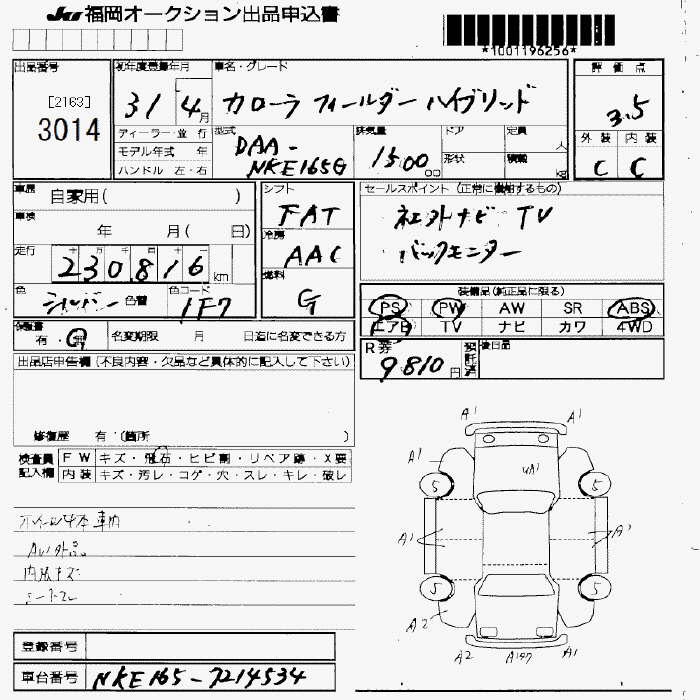 JU 福岡オークション出品申込書
*1001196256*
出品番号
[2163]
3014
初年度登録年月
31 4月
車名・グレード
カローラ フィールダー ハイブリッド
評価点
3.5
外装 内装
C C
ディーラー・並行
モデル年式 年
ハンドル 左・右
型式
DAA-
NKE165G
排気量
1500 cc
ドア
形状
定員 人
積載 kg
車歴 自家用( )
車検 年 月( 日)
走行 十 万 千 百 十 一
230816 km
色 シルバー 色替
色コード 1F7
シフト
FAT
冷房
AAC
燃料
G
セールスポイント (正常に機能するもの)
社外ナビ TV
バックモニター
装備品(純正品に限る)
PS PW AW SR ABS
エアB TV ナビ カワ 4WD
保証書
有・無
名変期限 月 日迄に名変できる方
R券
9810円
後日品
出品店申告欄 (不良内容・欠品など具体的に記入して下さい)
修復歴 有 (箇所 )
検査員
記入欄
FW キズ・飛石・ヒビ割・リペア跡・X要
内装 キズ・汚レ・コゲ・穴・スレ・キレ・破レ
ホイール4本車内
内張キズ
A1 A1
A1 UA1
5 5
A1 A1
5 5
A2
A2 A1 A1
登録番号
車台番号 NKE165-7214534